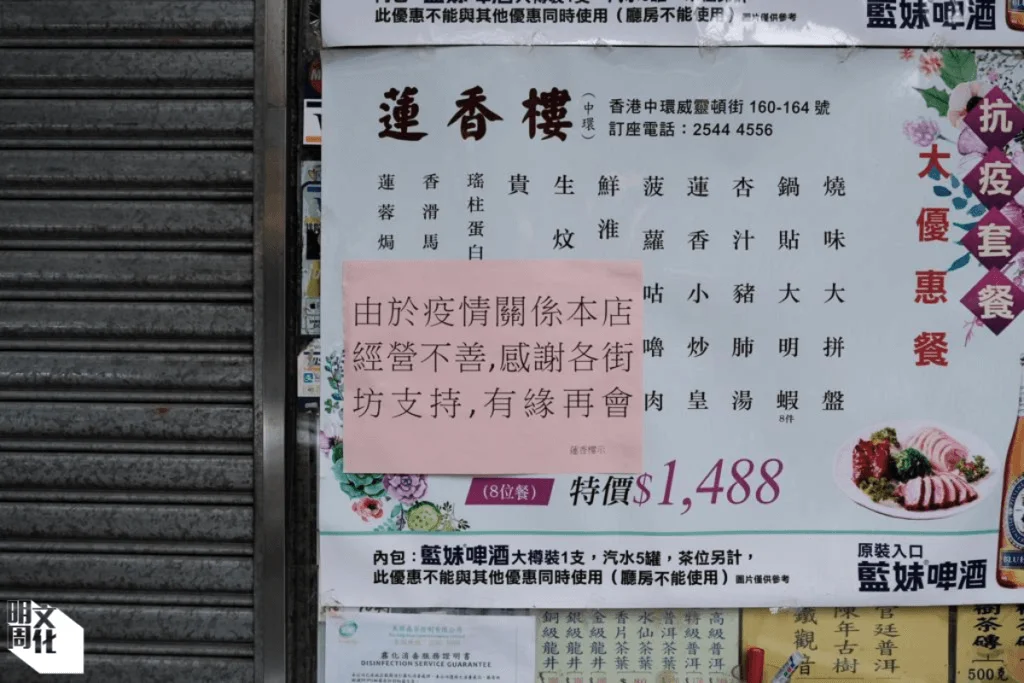 此優惠不能與其他優惠同時使用（廳房不能使用）圖片僅供參考
藍妹啤酒
蓮香樓（中環）
香港中環威靈頓街 160-164 號
訂座電話：2544 4556
抗疫套餐
大優惠餐
燒味大拼盤
鍋貼大明蝦
8件
杏汁豬肺湯
蓮香小炒皇
菠蘿咕嚕肉
鮮淮
生炆
貴
瑤柱蛋白
香滑馬
蓮蓉焗
由於疫情關係本店
經營不善,感謝各街
坊支持,有緣再會
蓮香樓示
(8位餐) 特價$1,488
內包：藍妹啤酒大樽裝1支，汽水5罐，茶位另計，
此優惠不能與其他優惠同時使用（廳房不能使用）圖片僅供參考
原裝入口
藍妹啤酒
霧化消毒服務證明書
DISINFECTION SERVICE GUARANTEE
高級普洱
特級普洱
普洱茶葉
水仙茶葉
香片茶葉
金級龍井
銀級龍井
銅級龍井
宮廷普洱
陳年古樹
鐵觀音
樹茶磚
500克
明周文化